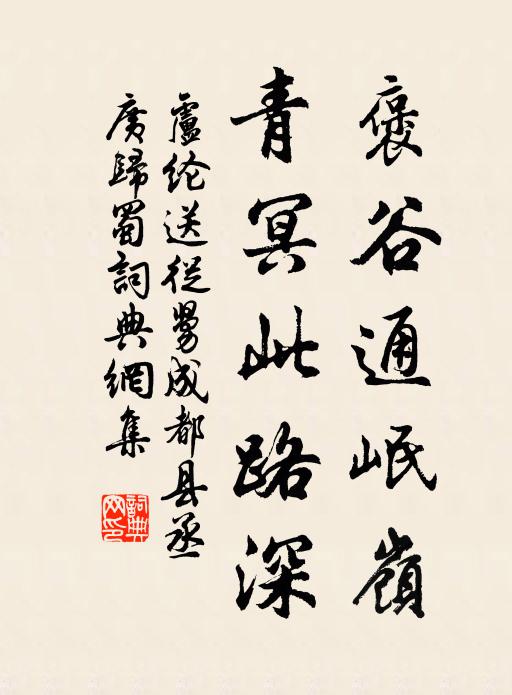 褒谷通岷嶺
青冥此路深
盧纶送從舅成都县丞
廣歸蜀詞典網集
詞典网印